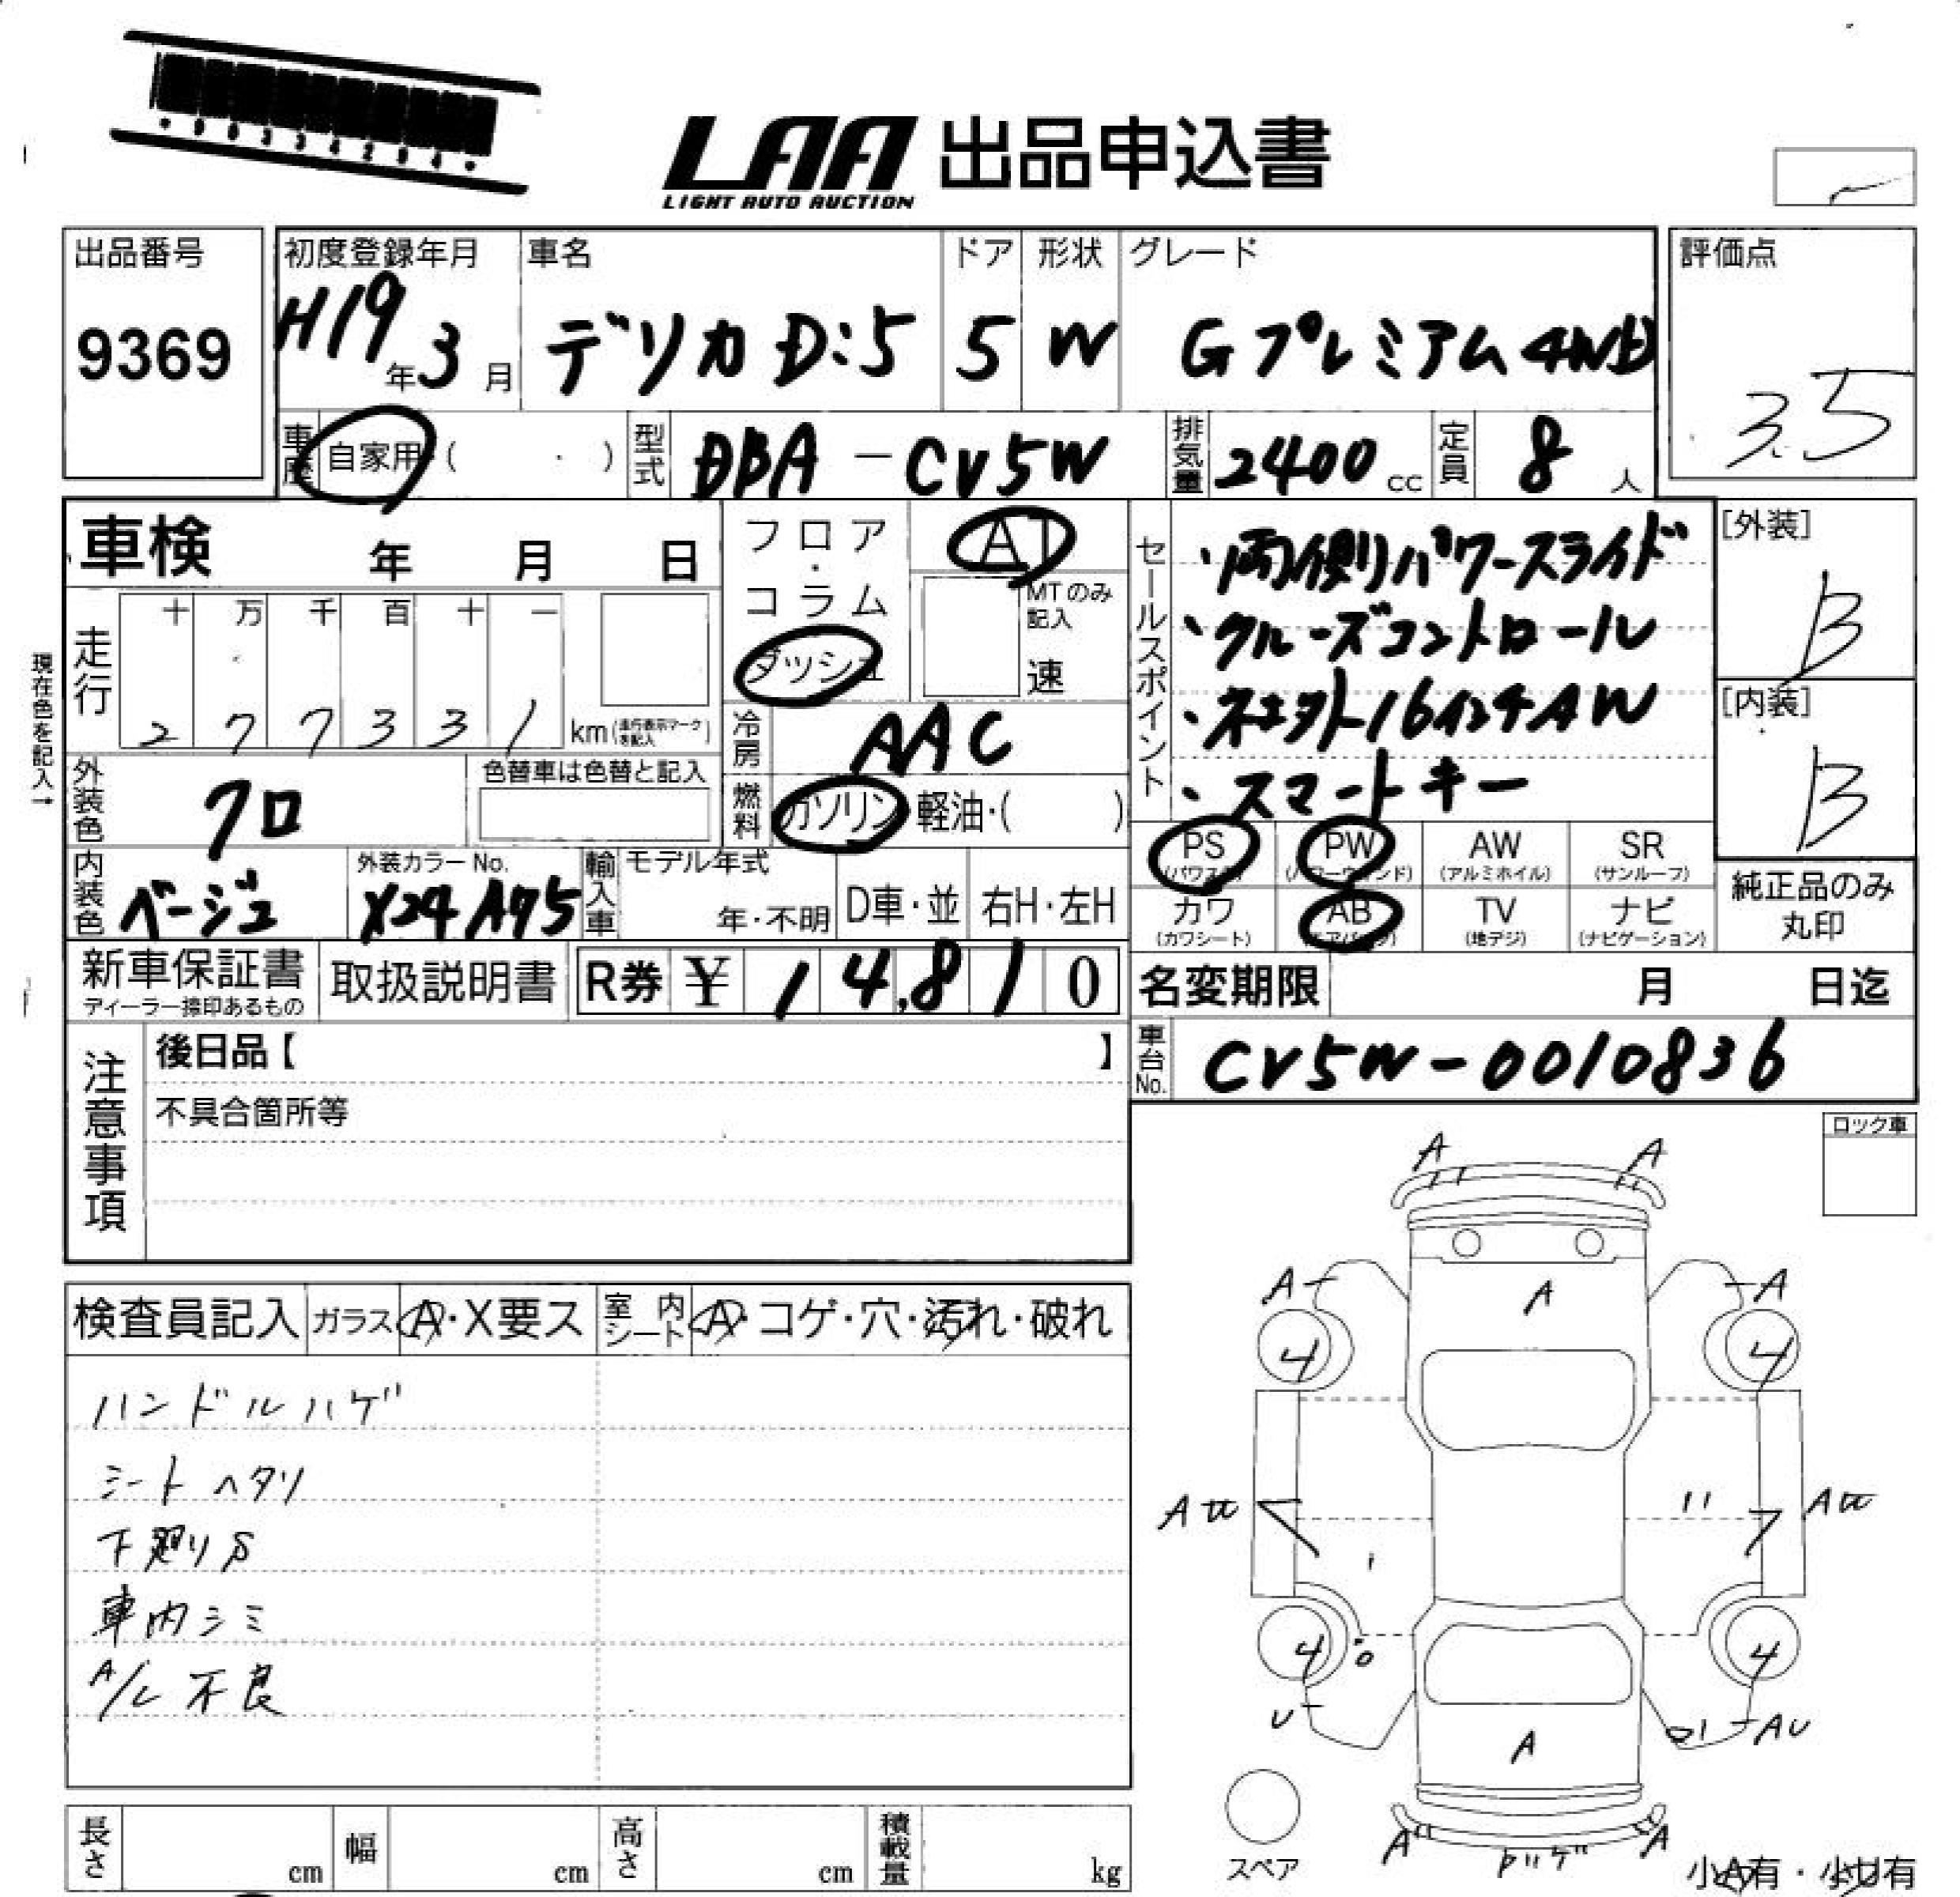 *90334204*
LAA 出品申込書
LIGHT AUTO AUCTION
出品番号
9369
初度登録年月
H19年3月
車名
デリカD:5
ドア
5
形状
W
グレード
Gプレミアム4WD
評価点
3.5
車歴 自家用 ( ・ )
型式 DBA-CV5W
排気量 2400 cc
定員 8 人
車検 年 月 日
現在色を記入→
走行
十 万 千 百 十 一
2 7 7 3 3 1 km(走行表示マークを記入)
フロア・コラム
ダッシュ
AT
MTのみ記入
速
冷房 AAC
燃料 ガソリン・軽油・( )
外装色 クロ
色替車は色替と記入
内装色 ベージュ
外装カラーNo.
X24A75
輸入車
モデル年式
年・不明
D車・並
右H・左H
セールスポイント
・両側パワースライド
・クルーズコントロール
・16インチAW
・スマートキー
[外装]
B
[内装]
B
PS (パワステ)
PW (パワーウィンド)
AW (アルミホイル)
SR (サンルーフ)
カワ (カワシート)
AB (エアバック)
TV (地デジ)
ナビ (ナビゲーション)
純正品のみ丸印
新車保証書
ディーラー捺印あるもの
取扱説明書
R券 ¥14,810
名変期限 月 日迄
車台No. CV5W-0010836
注意事項
後日品【 】
不具合箇所等
ロック車
検査員記入
ガラス A・X要ス
室内シート A・コゲ・穴・汚れ・破れ
ハンドルハゲ
シートヘタリ
下廻りS
車内シミ
A/C不良
A A
A A A
4 4
A A
4 4
U AU
A
A A
スペア
小A有・小U有
長さ cm
幅 cm
高さ cm
積載量 kg